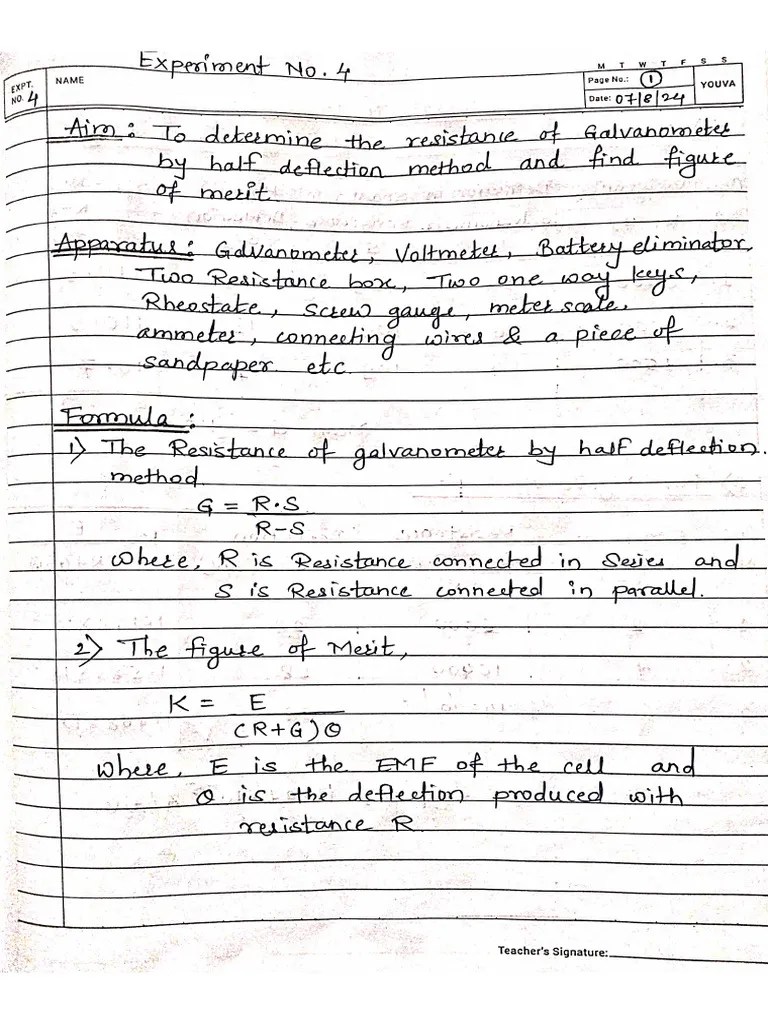 Experiment No. 4
M T W T F S S
EXPT. NO. 4
NAME
Page No.: 1
YOUVA
Date: 07/8/24
Aim: To determine the resistance of Galvanometer
by half deflection method and find figure
of merit.
Apparatus: Galvanometer, Voltmeter, Battery eliminator,
Two Resistance box, Two one way keys,
Rheostate, screw gauge, meter scale,
ammeter, connecting wires & a piece of
sandpaper etc.
Formula:
1) The Resistance of galvanometer by half deflection.
method
G = R·S
R-S
where, R is Resistance connected in Series and
S is Resistance connected in parallel.
2) The figure of Merit,
K = E
(R+G)θ
where, E is the EMF of the cell and
θ is the deflection produced with
resistance R
Teacher's Signature: